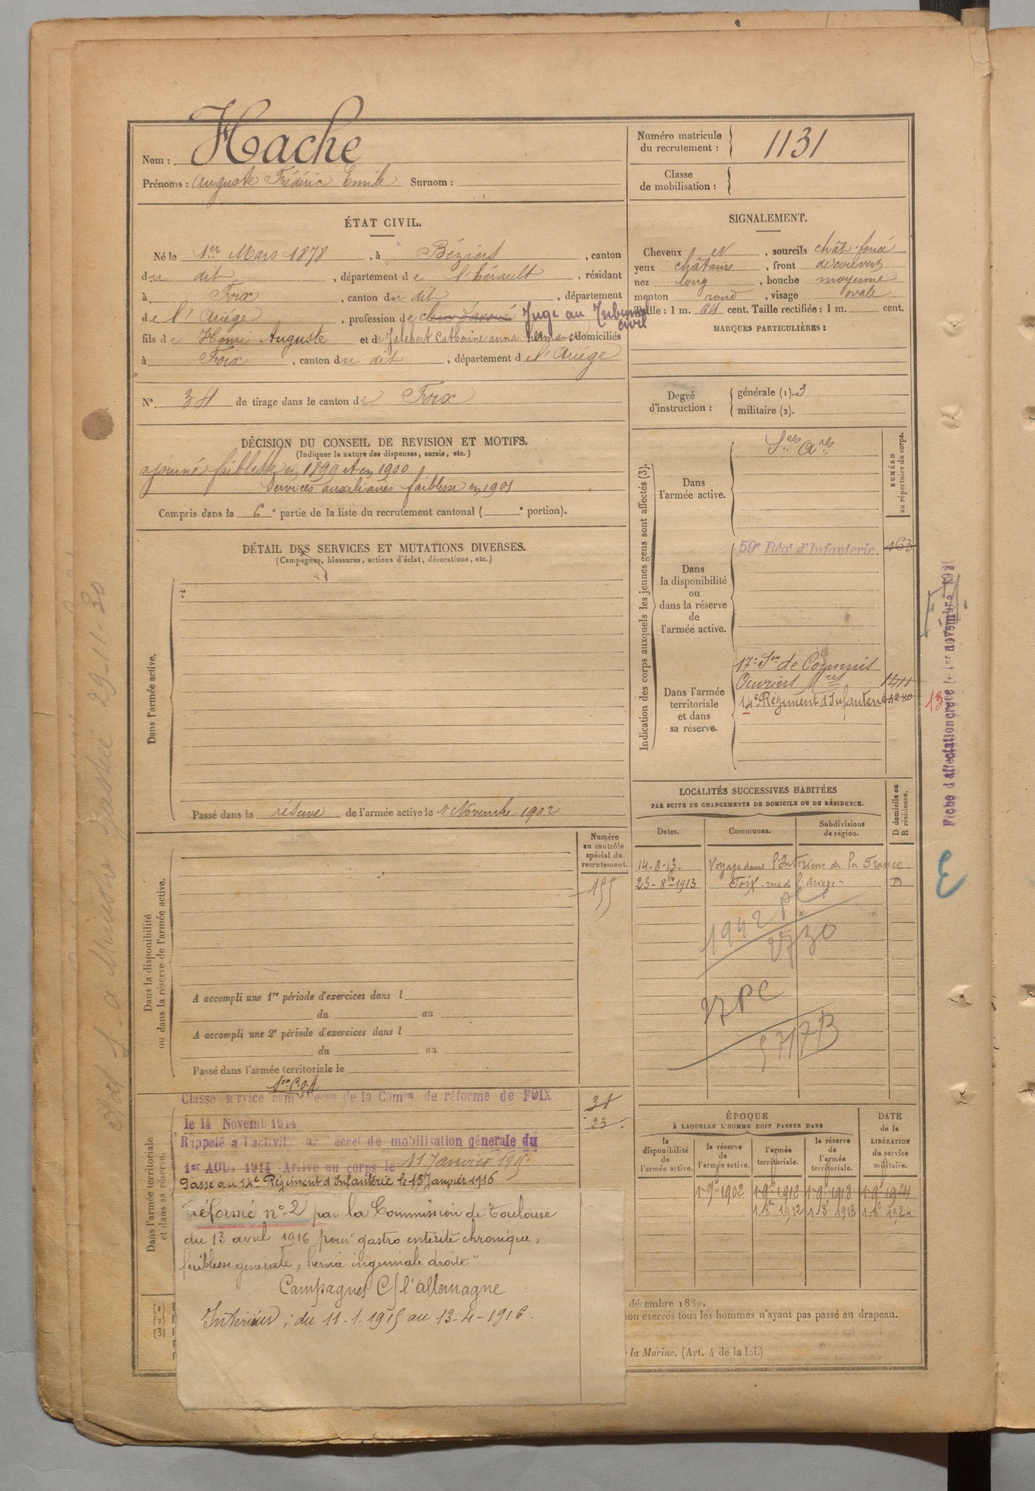 Nom : Hache
Prénoms : Auguste Frédéric Emile Surnom :
Numéro matricule du recrutement : 1131
Classe de mobilisation :
ÉTAT CIVIL.
Né le 1er Mars 1878, à Béziers, canton
du dit, département de l'hérault, résidant
à Foix, canton du dit, département
de l'Ariége, profession de clerc d'avoué Juge au Tribunal civil
fils de Auguste et de Catherine anna domiciliés
à Foix, canton du dit, département de l'Ariége
N° 34 de tirage dans le canton de Foix
SIGNALEMENT.
Cheveux et, sourcils chât. foncé
yeux châtains, front découvert
nez long, bouche moyenne
menton rond, visage ovale.
Taille : 1 m. 64 cent. Taille rectifiée : 1 m. cent.
MARQUES PARTICULIÈRES :
Degré d'instruction : générale (1). 3
militaire (2).
DÉCISION DU CONSEIL DE REVISION ET MOTIFS.
(Indiquer la nature des dispenses, sursis, etc.)
ajourné faiblesse en 1899 et en 1900
Services auxiliaires faiblesse en 1901
Compris dans la 6e partie de la liste du recrutement cantonal ( e portion).
DÉTAIL DES SERVICES ET MUTATIONS DIVERSES.
(Campagnes, blessures, actions d'éclat, décorations, etc.)
Dans l'armée active.
Passé dans la réserve de l'armée active le 1er Novembre 1902
Indication des corps auxquels les jeunes gens sont affectés (3).
NUMÉRO au répertoire du corps.
Dans l'armée active.
Sces Ares
Dans la disponibilité ou dans la réserve de l'armée active.
59e Régt d'Infanterie.
Dans l'armée territoriale et dans sa réserve.
17e Son de Commis
Ouvriers
14e Régiment d'Infanterie
Fiche d'affectation créée le 1er novembre
13
LOCALITÉS SUCCESSIVES HABITÉES
PAR SUITE DE CHANGEMENTS DE DOMICILE OU DE RÉSIDENCE.
Dates. Communes. Subdivisions de région. D domicile ou R résidence.
14-8-13. Voyage dans l'Intérieur de la France
23-8-1913 Foix rue de l'ariège D
1942
2730
Numéro au contrôle spécial du recrutement.
155
Dans la disponibilité ou dans la réserve de l'armée active.
A accompli une 1re période d'exercices dans l
du au
A accompli une 2e période d'exercices dans l
du au
Passé dans l'armée territoriale le
Dans l'armée territoriale et dans sa réserve.
Classé service armé de la Comon de réforme de FOIX
le 14 Novemb 1914
Rappelé à l'activité décret de mobilisation générale du
1er AOUT 1914 Arrivé au corps le 11 Janvier 1915
Passé au 14e Régiment d'Infanterie le 15 Janvier 1916
réformé n° 2 par la Commission de Toulouse
du 13 avril 1916 pour "gastro entérite chronique,
faiblesse generale, hernie inguinale droite"
Campagnes C/ l'allemagne
Intérieur : du 11-1-1915 au 13-4-1916.
ÉPOQUE
À LAQUELLE L'HOMME DOIT PASSER DANS
DATE de la LIBÉRATION du service militaire.
la disponibilité de l'armée active. la réserve de l'armée active. l'armée territoriale. la réserve de l'armée territoriale.
décembre 1889.
non exercés tous les hommes n'ayant pas passé au drapeau.
la Marine. (Art. 4 de la loi.)
29-11-30